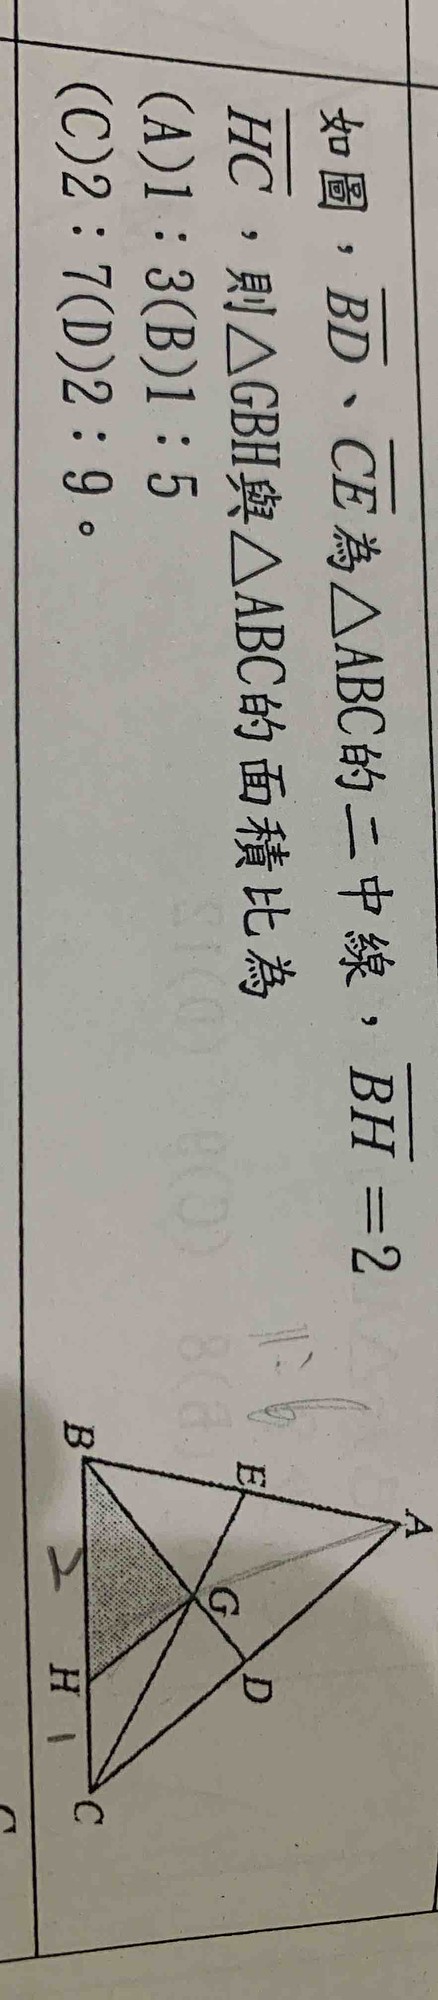 如圖，BD、CE為△ABC的二中線，BH=2
HC，則△GBH與△ABC的面積比為
(A)1：3(B)1：5
(C)2：7(D)2：9。
1:6
A
E
G
D
B
H
C
2
1